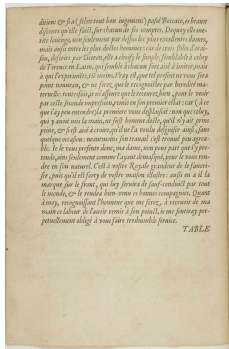 dition: & s'a (selon tout bon iugement) passé Boccace, es beaux
discours qu'elle faict, sur chacun de ses comptes. Dequoy elle me-
rite louenge, non seulement par dessus les plus excellentes dames,
mais aussi entre les plus doctes hommes: car de trois stiles d'orai-
son, descrits par Ciceron, elle a choisi le simple, semblable à celuy
de Terence en Latin, qui semble à chacun fort aisé à imiter, mais
à qui l'experimente, rien moins. Vray est, que tel present ne vous sera
point nouueau, & ne ferez, que le recognoistre par heredité ma-
ternelle: toutesfois, ie m'asseure que le receurez bien, pour le voir
par ceste seconde impression, remis en son premier estat: car (à ce
que i'ay peu entendre) la premiere vous desplaisoit: non que celuy,
qui y auoit mis la main, ne fust homme docte, qu'il n'y ait prins
peine, & si est aisé à croire, qu'il ne l'a voulu desguiser ainsi, sans
quelque occasion: neantmoins son trauail s'est trouué peu agrea-
ble. Ie le vous presente donc, ma dame, non pour part que i'y pre-
tende, ains seulement comme l'ayant demasqué, pour le vous ren-
dre en son naturel. C'est à vostre Royale grandeur de le fauori-
ser, puis qu'il est sorty de vostre maison illustre: aussi en a il la
marque sur le front, qui luy seruira de sauf-conduict par tout
le monde, & le rendra bien-venu es bonnes compagnies. Quant
à moy, recognoissant l'honneur que me ferez, à receuoir de ma
main ce labeur de l'auoir remis à son poinct, ie me sentiray per-
petuellement obligé à vous faire treshumble seruice.
TABLE